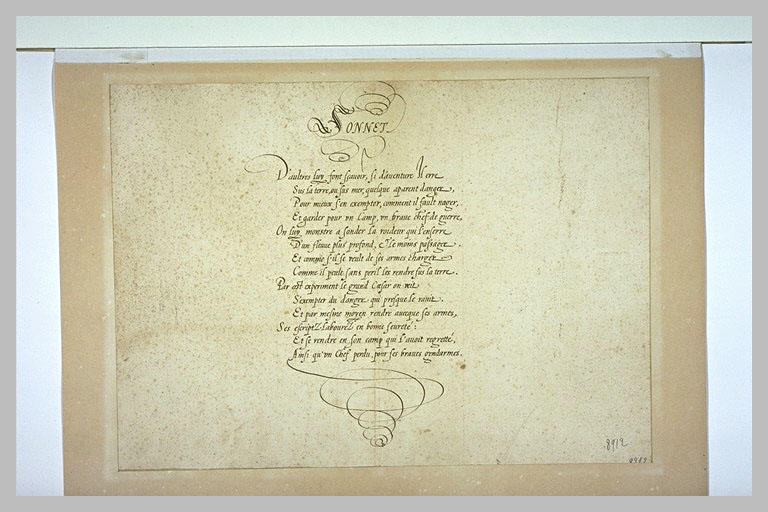 SONNET.
D'aultres luy font sçauoir, si d'auenture Il erre
Sus la terre, ou sus mer, quelque aparent danger,
Pour mieux s'en exempter, comment il fault nager,
Et garder pour vn Camp, vn braue chef de guerre,
On luy monstre a sonder la roideur qui l'enserre
D'un fleuue plus profond, & le moins passager.
Et comme s'il se veult de ses armes charger
Comme il peult sans peril les rendre sus la terre.
Par cest experiment le grand Cæsar on veit
S'exempter du danger qui presque le rauit.
Et par mesme moyen rendre auecque ses armes,
Ses escriptz labourez en bonne seureté:
Et se rendre en son camp qui l'auoit regretté,
Ainsi qu'vn Chef perdu, pour ses braues gendarmes.
8912